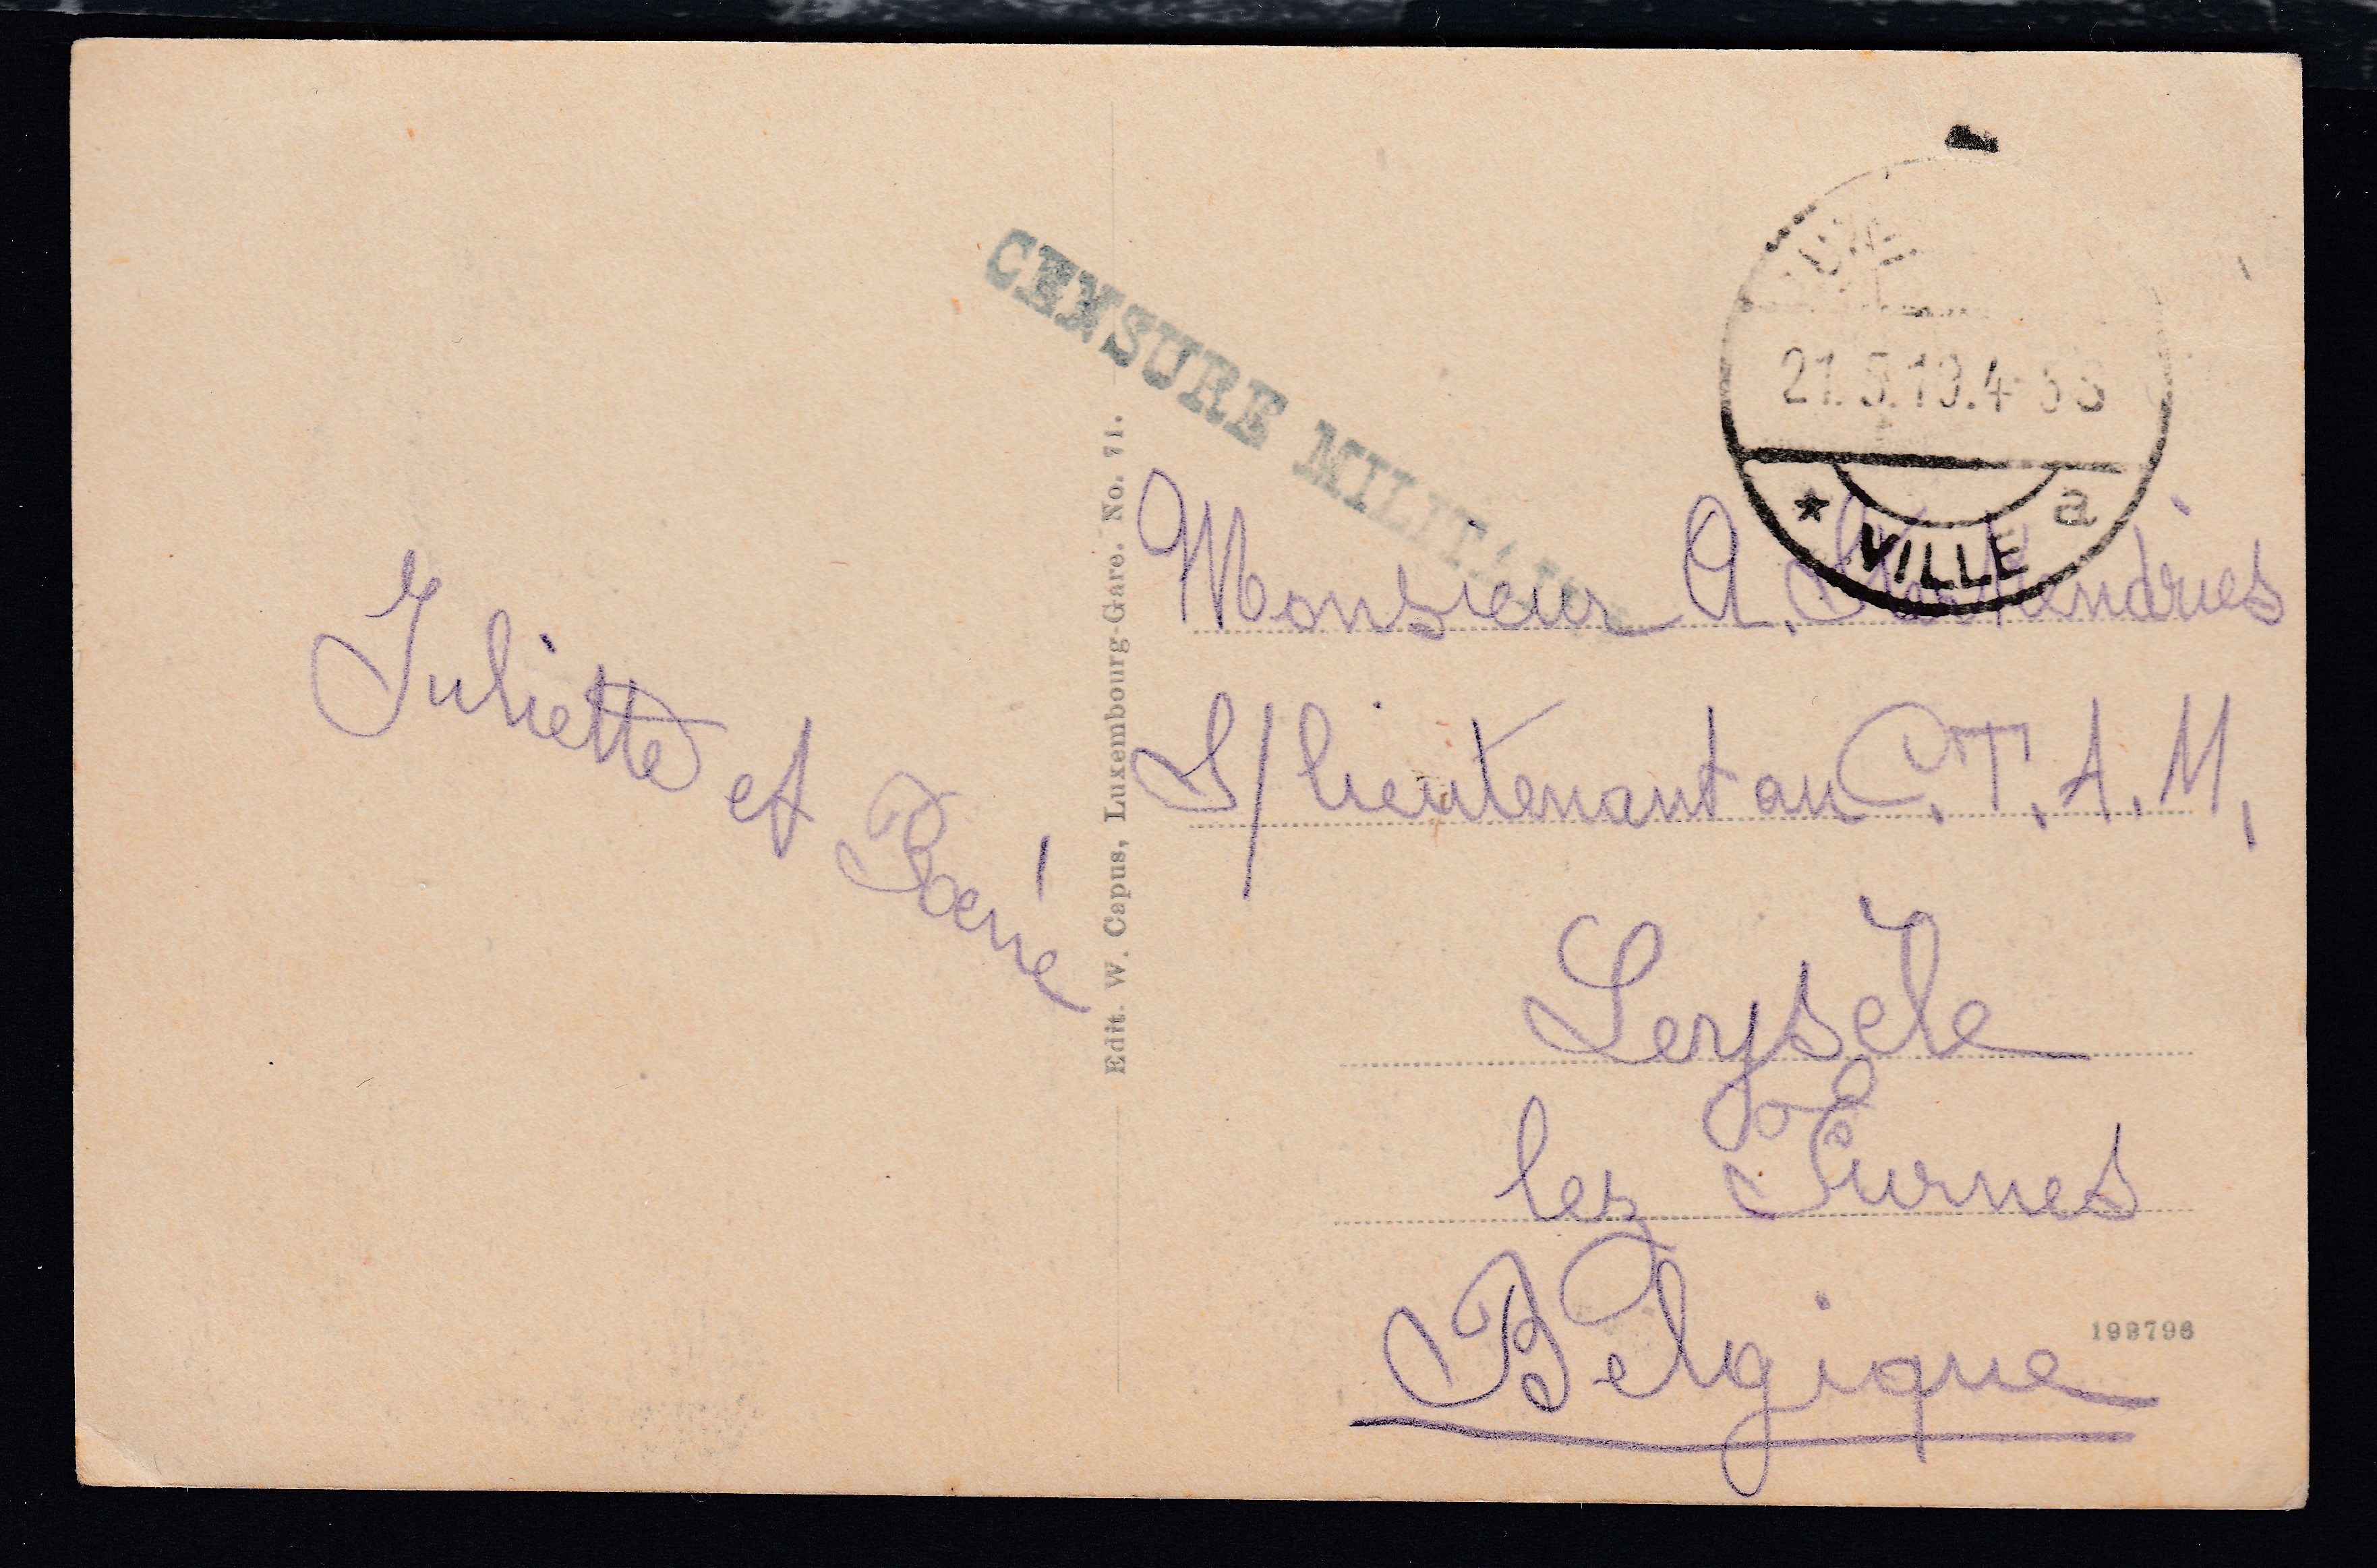 CENSURE MILITAIRE
21.5.19.4-5S
* VILLE a
Monsieur A.
S/lieutenant au C.T.A.M.
Leysele
lez Furnes
Belgique
Juliette et René
Edit. W. Capus, Luxembourg-Gare. No. 71.
199796